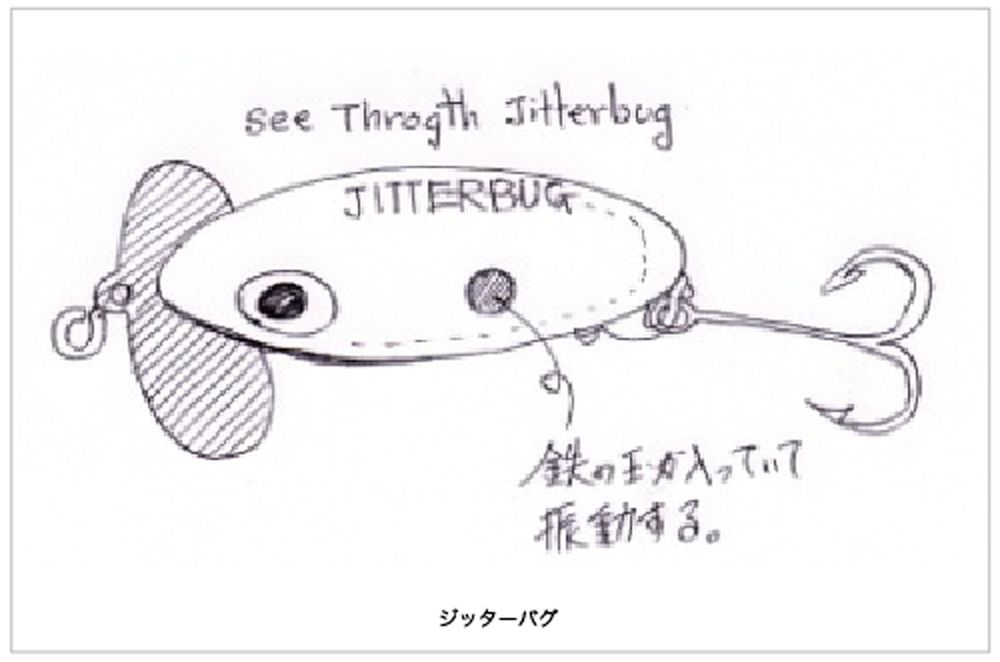 See Throgth Jitterbug
JITTERBUG
鉄の玉が入っていて
振動する。
ジッターバグ